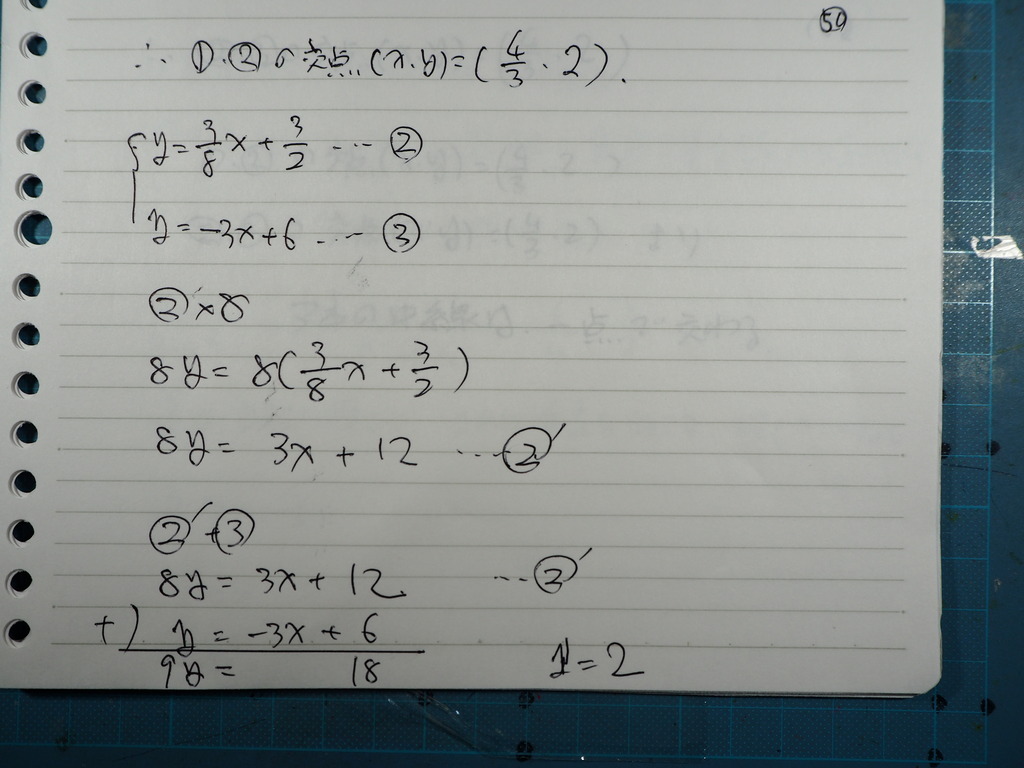 59
∴ ①.②の交点(x.y)=(4/3 . 2).
y=3/8x+3/2 … ②
y=-3x+6 … ③
②×8
8y=8(3/8x+3/2)
8y=3x+12 …②′
②′+③
8y=3x+12 …②′
+) y=-3x+6
9y= 18 y=2